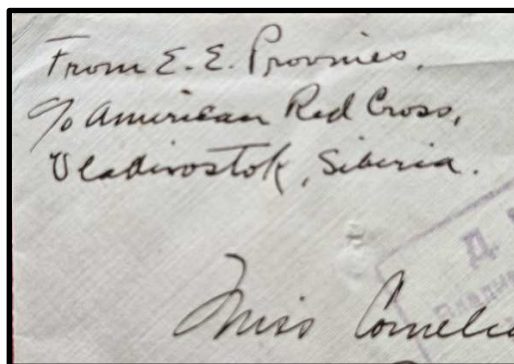 From E. E. Provines,
c/o American Red Cross,
Vladivostok, Siberia.
Д.
Miss Cornelia